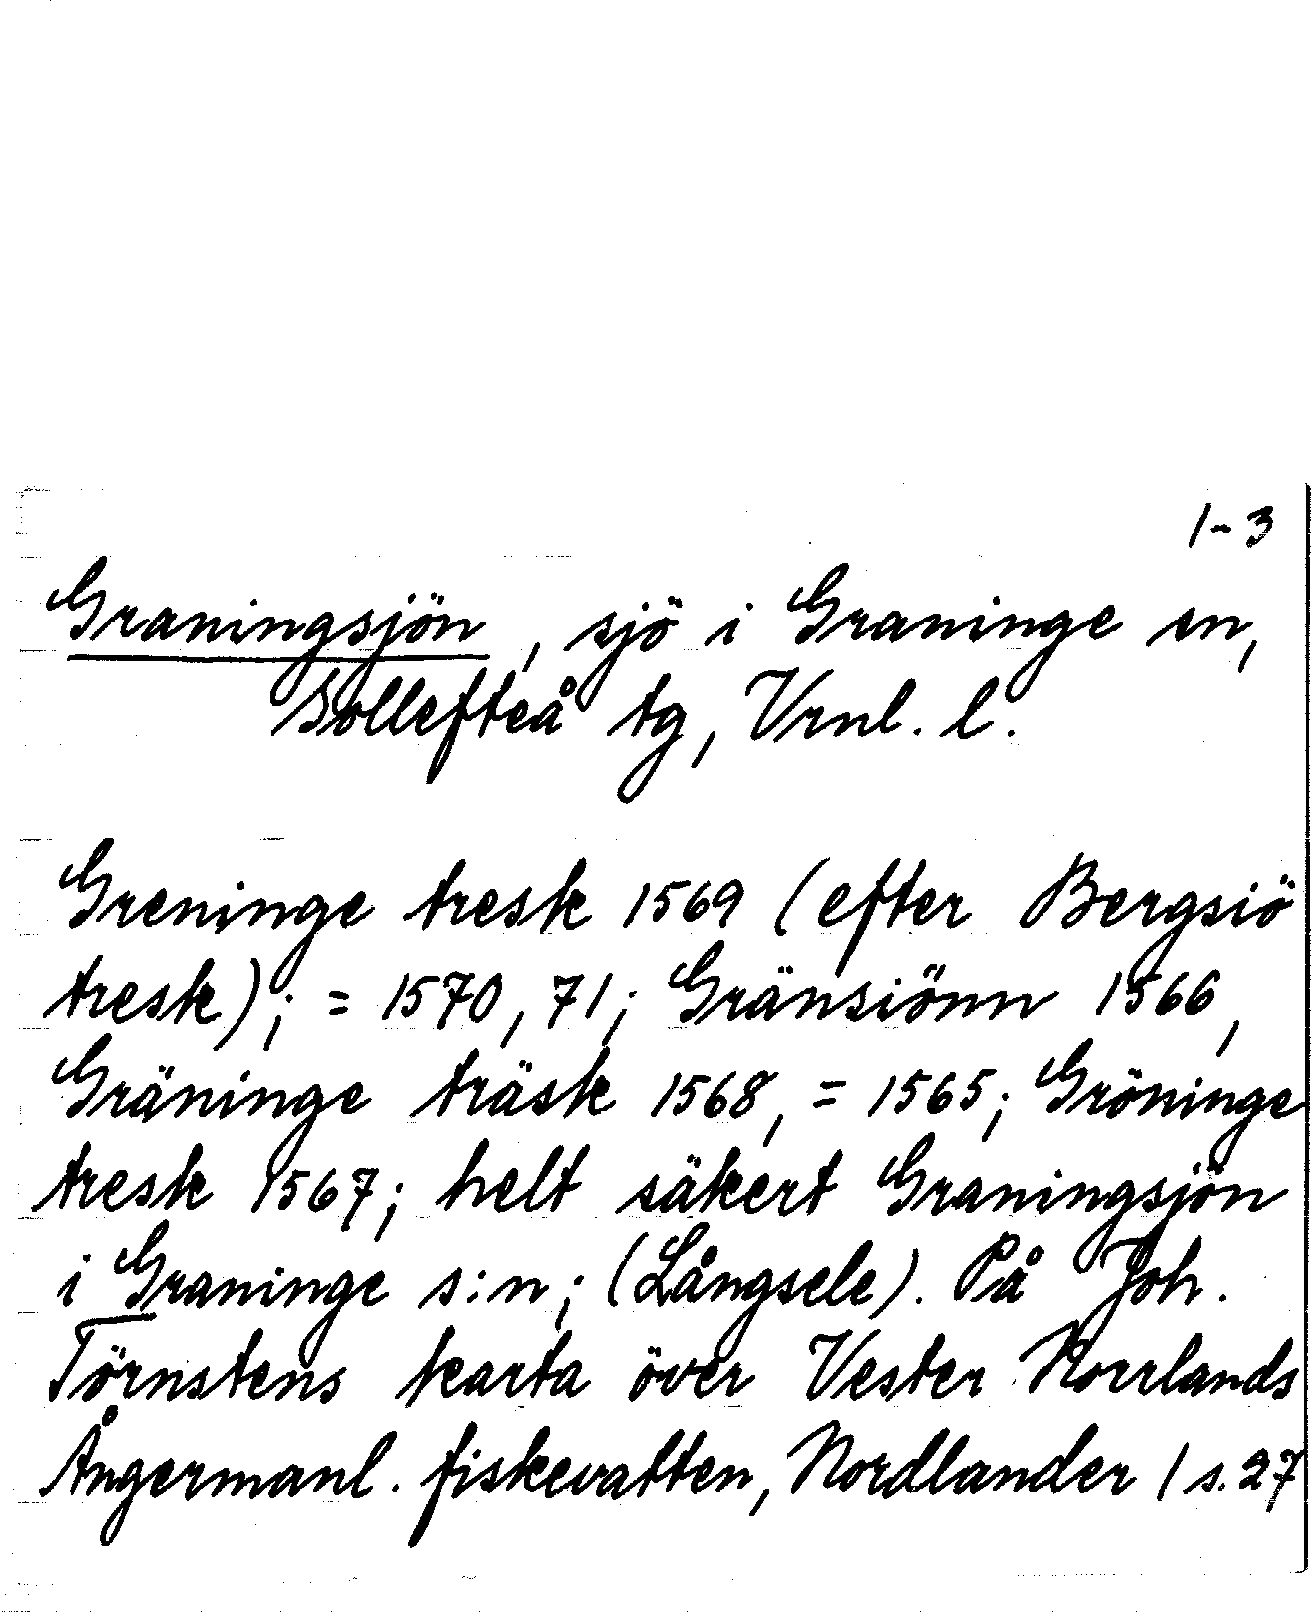 1-3
Graningsjön, sjö i Graninge sn,
Sollefteå tg, Vrnl. l.
Greninge tresk 1569 (efter Bergsiö
tresk); = 1570, 71; Gränsiönn 1566,
Gräninge träsk 1568, = 1565; Gröninge
tresk 1567; helt säkert Graningsjön
i Graninge s:n; (Långsele). På Joh.
Törnstens karta över Vester Norrlands
Ångermanl. fiskevatten, Nordlander 1 s. 27